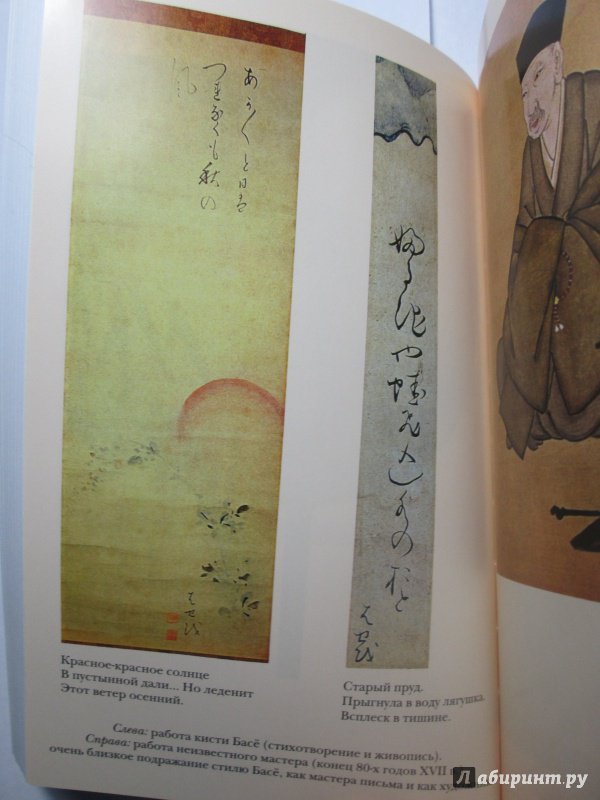 あか〱と日は
つれなくも秋の
風
はせを
ふる池や蛙飛込水のおと
はせを
Красное-красное солнце
В пустынной дали... Но леденит
Этот ветер осенний.
Старый пруд.
Прыгнула в воду лягушка.
Всплеск в тишине.
Слева: работа кисти Басё (стихотворение и живопись).
Справа: работа неизвестного мастера (конец 80-х годов XVII
очень близкое подражание стилю Басё, как мастера письма и как
Лабиринт.ру